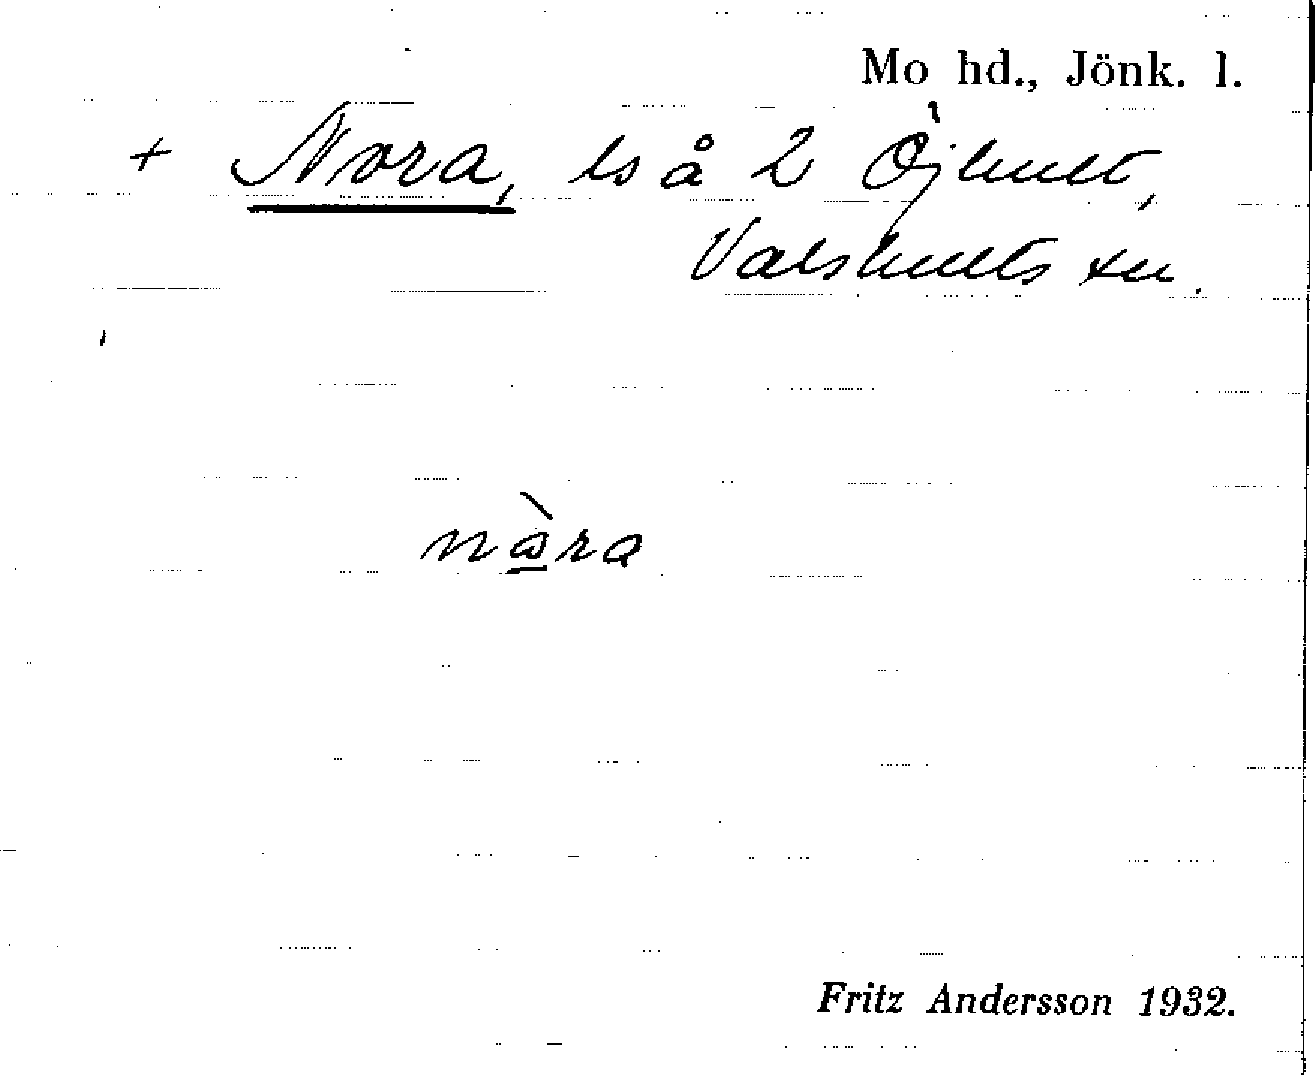 Mo hd., Jönk. l.
+ Nora, ls å 2 Öjhult,
Valshults sn.
nàra
Fritz Andersson 1932.